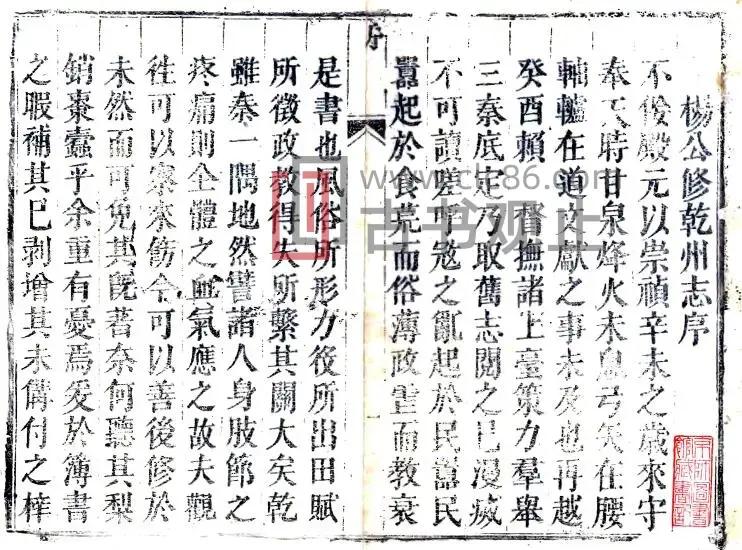 楊公修乾州志序
不佞殿元以崇禎辛未之歲來守
奉天時甘泉烽火未息弓矢在腰
軸轤在道文獻之事未及也再越
癸酉賴 督撫諸上臺策力羣舉
三秦底定乃取舊志閱之已漫滅
不可讀嗟呼寇之亂起於民嚚民
嚚起於食荒而俗薄政而教衰
序
是書也風俗所形力役所出田賦
所徵政教得失所繫其關大矣乾
雖秦一隅地然譬諸人身肢節之
疼痛則全體之血氣應之故夫觀
徃可以察來飭今可以善後修於
未然而可免其旣著奈何聽其梨
銷棗蠹乎余重有憂焉爰於簿書
之暇補其已剥增其未備付之梓
古书观止